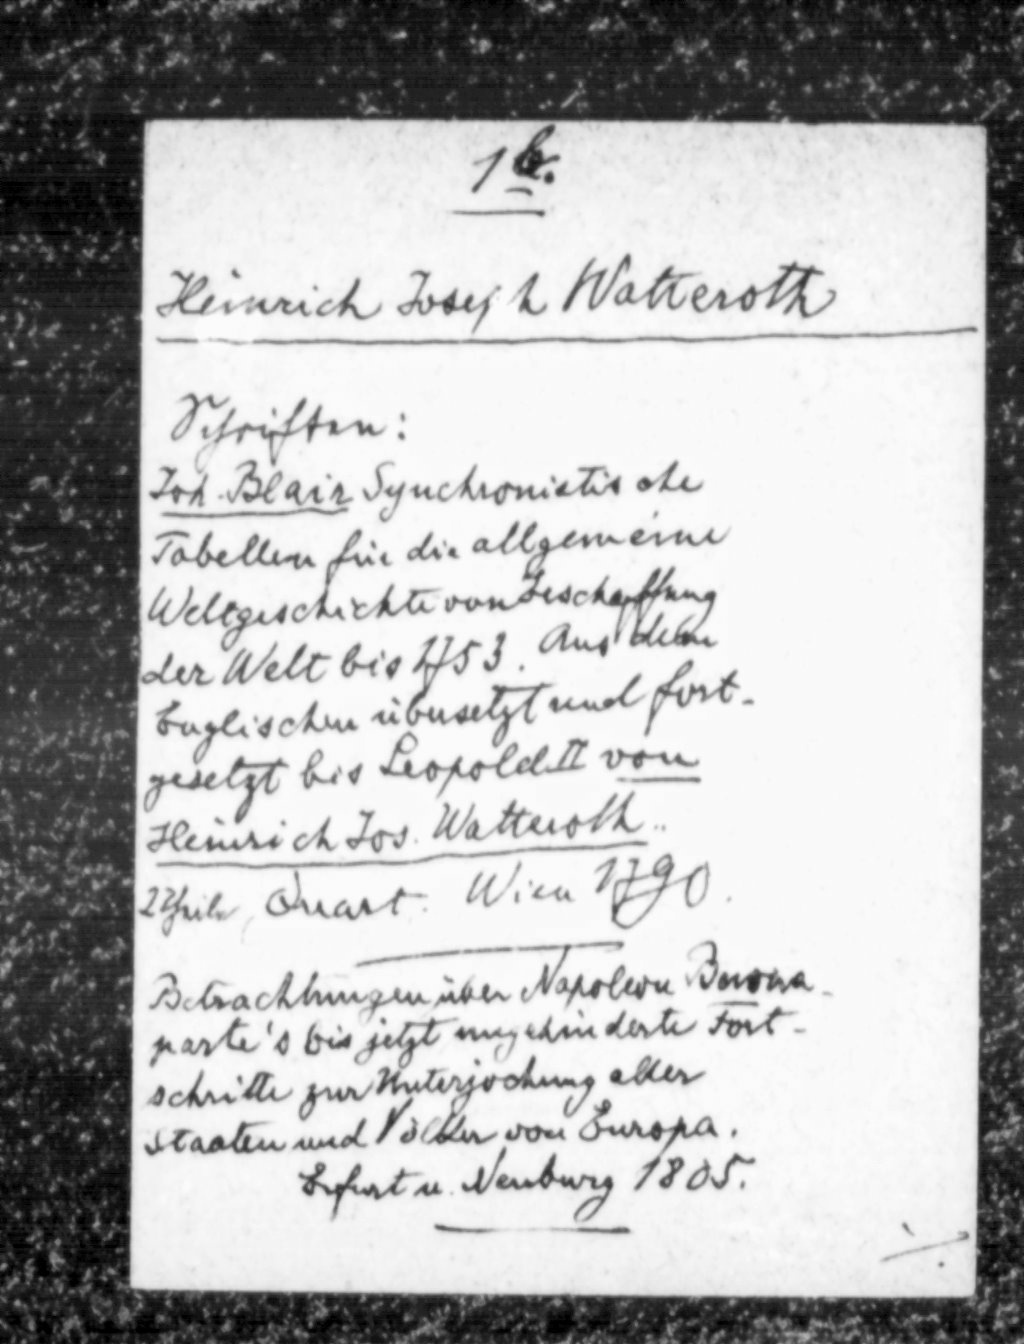 1b.
Heinrich Joseph Watteroth
Schriften:
Joh. Blair Synchronistische
Tabellen für die allgemeine
Weltgeschichte von Geschaffung
der Welt bis 1753. Aus dem
Englischen übersetzt und fort-
gesetzt bis Leopold II von
Heinrich Jos. Watteroth..
2 Theile, Quart. Wien 1790.
Betrachtungen über Napoleon Buona-
parte's bis jetzt ungehinderte Fort-
schritte zur Unterjochung aller
Staaten und Völker von Europa.
Erfurt u. Neuburg 1805.